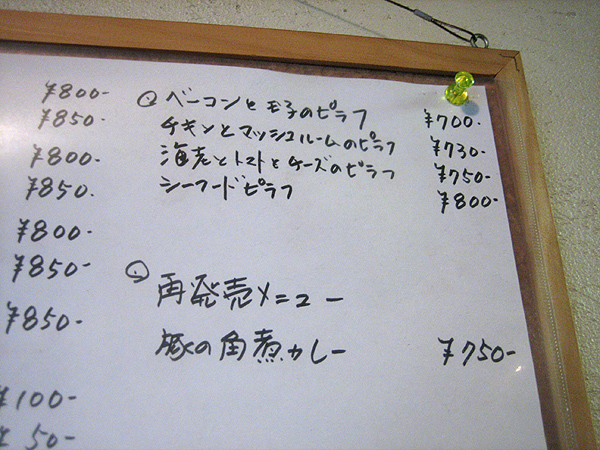 ¥800-
¥850-
¥800-
¥850-
¥800-
¥850-
¥850-
¥100-
¥50-
ベーコンと玉子のピラフ ¥700-
チキンとマッシュルームのピラフ ¥730-
海老とトマトとチーズのピラフ ¥750-
シーフードピラフ ¥800-
再発売メニュー
豚の角煮カレー ¥750-